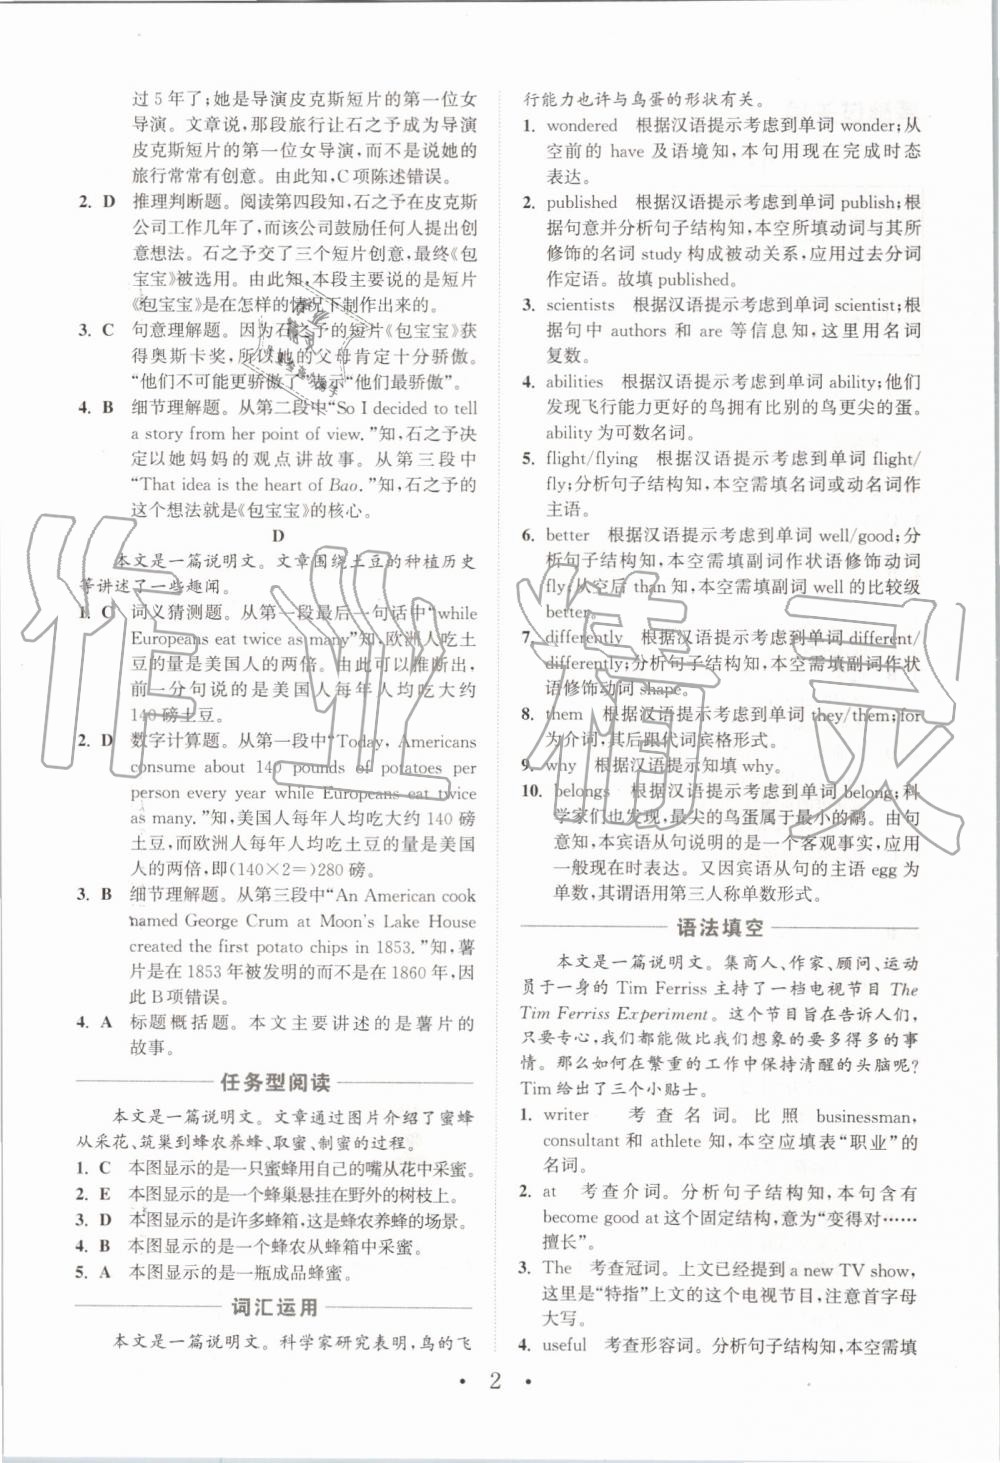 过5年了;她是导演皮克斯短片的第一位女
导演。文章说,那段旅行让石之予成为导演
皮克斯短片的第一位女导演,而不是说她的
旅行常常有创意。由此知,C项陈述错误。
2. D 推理判断题。阅读第四段知,石之予在皮克斯
公司工作几年了,而该公司鼓励任何人提出创
意想法。石之予交了三个短片创意,最终《包
宝宝》被选用。由此知,本段主要说的是短片
《包宝宝》是在怎样的情况下制作出来的。
3. C 句意理解题。因为石之予的短片《包宝宝》获
得奥斯卡奖,所以她的父母肯定十分骄傲。
“他们不可能更骄傲了”表示“他们最骄傲”。
4. B 细节理解题。从第二段中“So I decided to tell
a story from her point of view.”知,石之予决
定以她妈妈的观点讲故事。从第三段中
“That idea is the heart of Bao.”知,石之予的
这个想法就是《包宝宝》的核心。
D
本文是一篇说明文。文章围绕土豆的种植历史
等讲述了一些趣闻。
1. C 词义猜测题。从第一段最后一句话中“while
Europeans eat twice as many”知,欧洲人吃土
豆的量是美国人的两倍。由此可以推断出,
前一分句说的是美国人每年人均吃大约
140磅土豆。
2. D 数字计算题。从第一段中“Today, Americans
consume about 140 pounds of potatoes per
person every year while Europeans eat twice
as many.”知,美国人每年人均吃大约140磅
土豆,而欧洲人每年人均吃土豆的量是美国
人的两倍,即(140×2=)280磅。
3. B 细节理解题。从第三段中“An American cook
named George Crum at Moon's Lake House
created the first potato chips in 1853.”知,薯
片是在1853年被发明的而不是在1860年,因
此B项错误。
4. A 标题概括题。本文主要讲述的是薯片的
故事。
任务型阅读
本文是一篇说明文。文章通过图片介绍了蜜蜂
从采花、筑巢到蜂农养蜂、取蜜、制蜜的过程。
1. C 本图显示的是一只蜜蜂用自己的嘴从花中采蜜。
2. E 本图显示的是一个蜂巢悬挂在野外的树枝上。
3. D 本图显示的是许多蜂箱,这是蜂农养蜂的场景。
4. B 本图显示的是一个蜂农从蜂箱中采蜜。
5. A 本图显示的是一瓶成品蜂蜜。
词汇运用
本文是一篇说明文。科学家研究表明,鸟的飞
行能力也许与鸟蛋的形状有关。
1. wondered 根据汉语提示考虑到单词 wonder;从
空前的 have 及语境知,本句用现在完成时态
表达。
2. published 根据汉语提示考虑到单词 publish;根
据句意并分析句子结构知,本空所填动词与其所
修饰的名词 study 构成被动关系,应用过去分词
作定语。故填 published。
3. scientists 根据汉语提示考虑到单词 scientist;根
据句中 authors 和 are 等信息知,这里用名词
复数。
4. abilities 根据汉语提示考虑到单词 ability;他们
发现飞行能力更好的鸟拥有比别的鸟更尖的蛋。
ability 为可数名词。
5. flight/flying 根据汉语提示考虑到单词 flight/
fly;分析句子结构知,本空需填名词或动名词作
主语。
6. better 根据汉语提示考虑到单词 well/good;分
析句子结构知,本空需填副词作状语修饰动词
fly;从空后 than 知,本空需填副词 well 的比较级
better。
7. differently 根据汉语提示考虑到单词 different/
differently;分析句子结构知,本空需填副词作状
语修饰动词 shape。
8. them 根据汉语提示考虑到单词 they/them;for
为介词,其后跟代词宾格形式。
9. why 根据汉语提示知填 why。
10. belongs 根据汉语提示考虑到单词 belong;科
学家们也发现,最尖的鸟蛋属于最小的鹬。由句
意知,本宾语从句说明的是一个客观事实,应用
一般现在时表达。又因宾语从句的主语 egg 为
单数,其谓语用第三人称单数形式。
语法填空
本文是一篇说明文。集商人、作家、顾问、运动
员于一身的 Tim Ferriss 主持了一档电视节目 The
Tim Ferriss Experiment。这个节目旨在告诉人们,
只要专心,我们都能做比我们想象的要多得多的事
情。那么如何在繁重的工作中保持清醒的头脑呢?
Tim 给出了三个小贴士。
1. writer 考查名词。比照 businessman,
consultant 和 athlete 知,本空应填表“职业”的
名词。
2. at 考查介词。分析句子结构知,本句含有
become good at 这个固定结构,意为“变得对……
擅长”。
3. The 考查冠词。上文已经提到 a new TV show,
这里是“特指”上文的这个电视节目,注意首字母
大写。
4. useful 考查形容词。分析句子结构知,本空需填
• 2 •
作业精灵